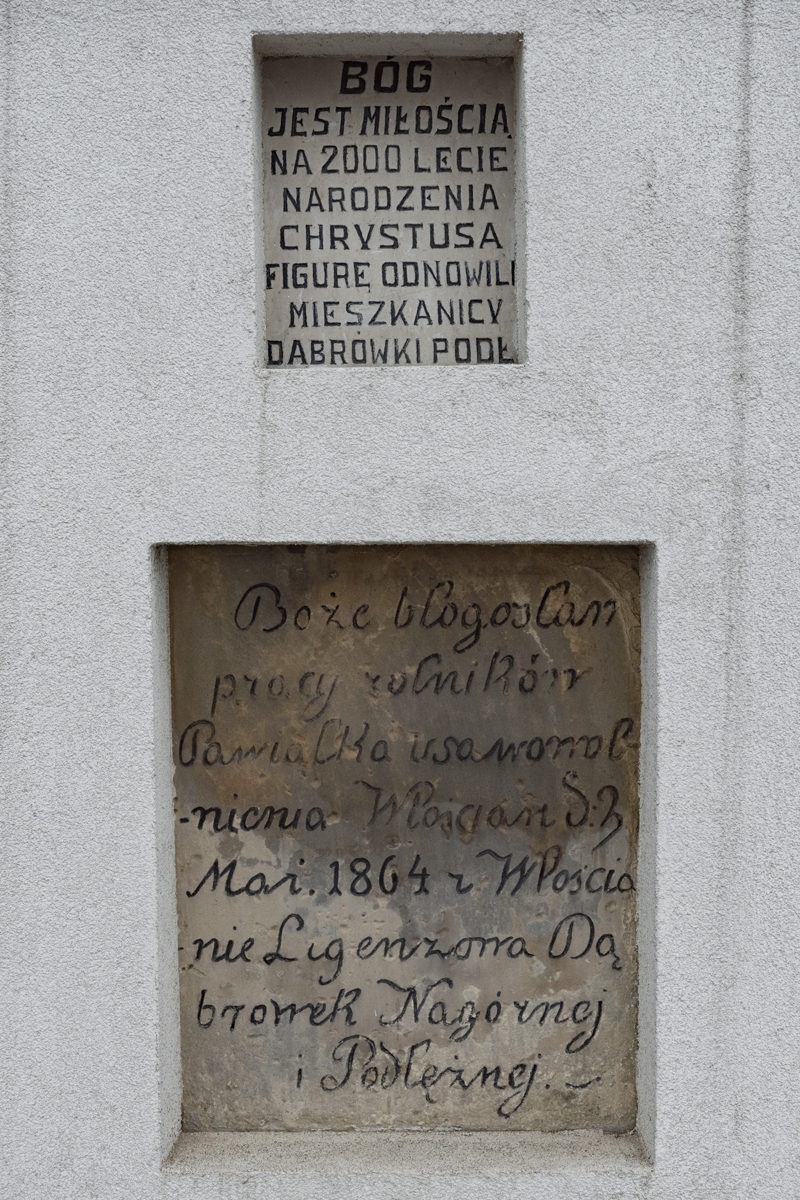 BÓG
JEST MIŁOŚCIĄ
NA 2000 LECIE
NARODZENIA
CHRYSTUSA
FIGURĘ ODNOWILI
MIESZKANICY
DĄBRÓWKI PODŁ
Boże błogosłan
pracy rolników
Pamiąłka usawowol-
-nicnia Włościan D: 3
Mai. 1864 r Włościa
-nie Ligenzowa Dą
browek Nagórnej
i Podlężnej.